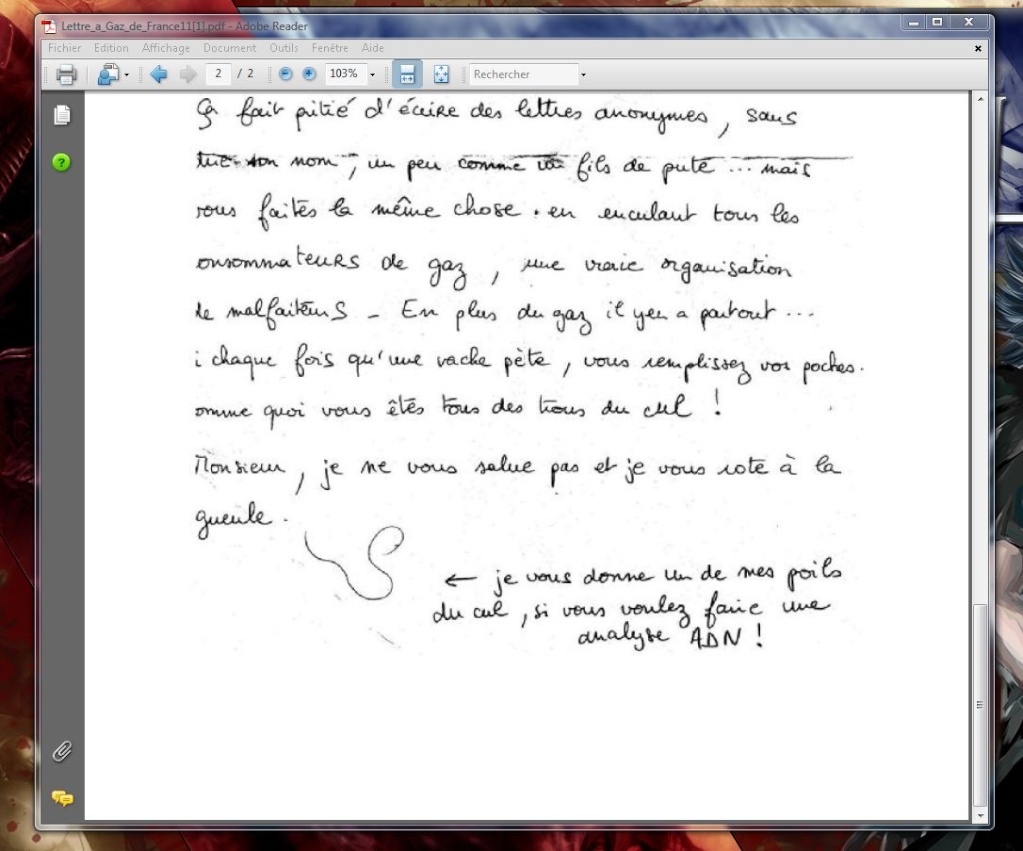 Lettre_a_Gaz_de_France11[1].pdf - Adobe Reader
Fichier Edition Affichage Document Outils Fenêtre Aide
2 / 2 103% Rechercher
Ça fait pitié d'écrire des lettres anonymes, sans
son nom, un peu comme un fils de pute ... mais
vous faites la même chose . en enculant tous les
onsommateurs de gaz, une vraie organisation
de malfaiteurS - En plus du gaz il y en a partout ...
chaque fois qu'une vache pète, vous remplissez vos poches.
omme quoi vous êtes tous des trous du cul !
Monsieur, je ne vous salue pas et je vous rote à la
gueule.
← je vous donne un de mes poils
du cul, si vous voulez faire une
analyse ADN !